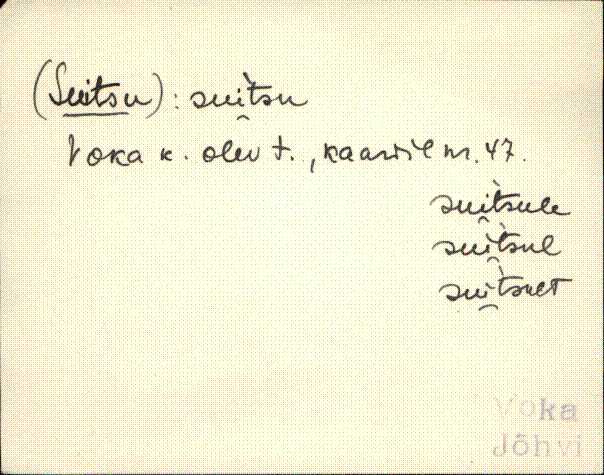 (Suitsu): sui̯t̀su
Voka k. olev t., kaardil nr. 47.
sui̯t̀sule
sui̯t̀sul
sui̯t̀sult
Voka
Jõhvi